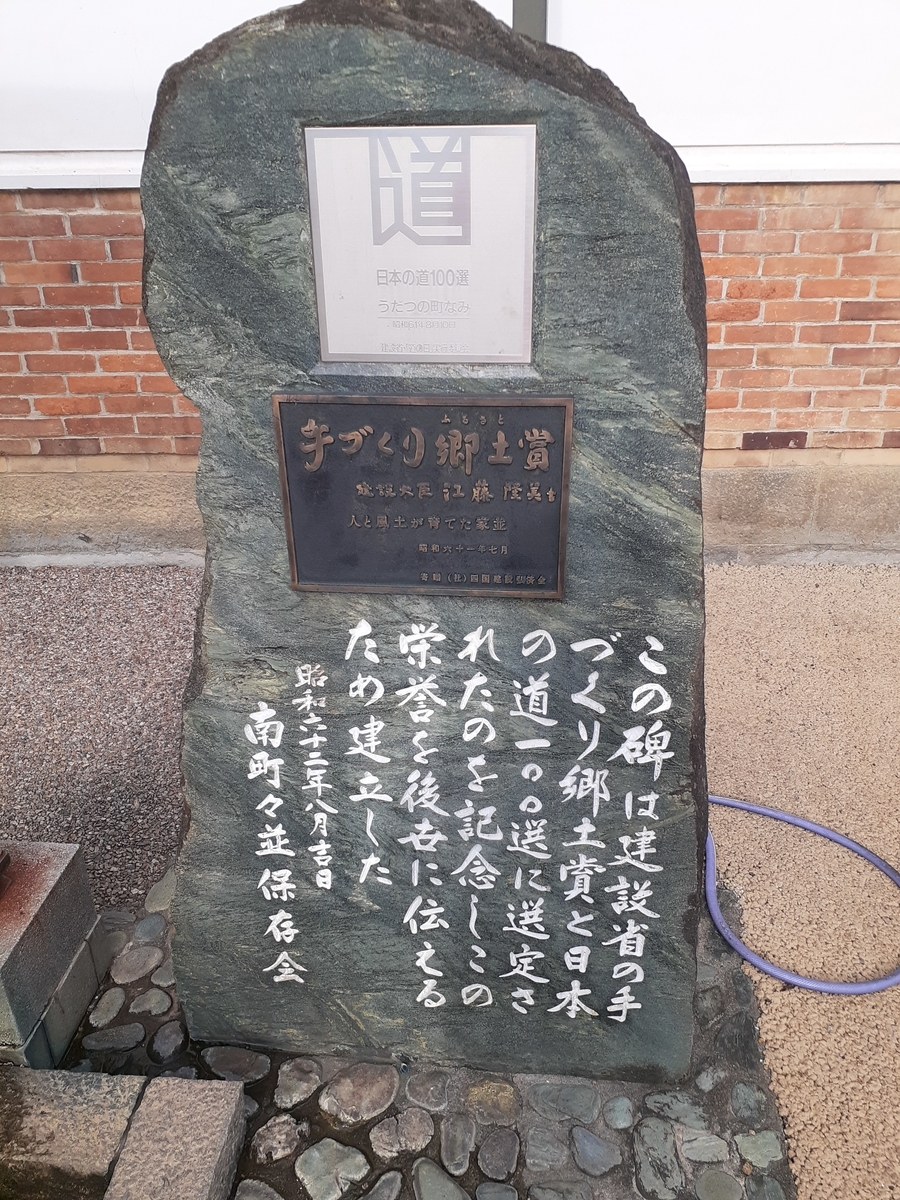 道
日本の道100選
うだつの町なみ
昭和61年8月10日
ふるさと
手づくり郷土賞
建設大臣 江藤隆美書
人と風土が育てた家並
昭和六十一年七月
寄贈(社)四国建設弘済会
この碑は建設省の手
づくり郷土賞と日本
の道一〇〇選に選定さ
れたのを記念しこの
栄誉を後世に伝える
ため建立した
昭和六十二年八月吉日
南町々並保存会